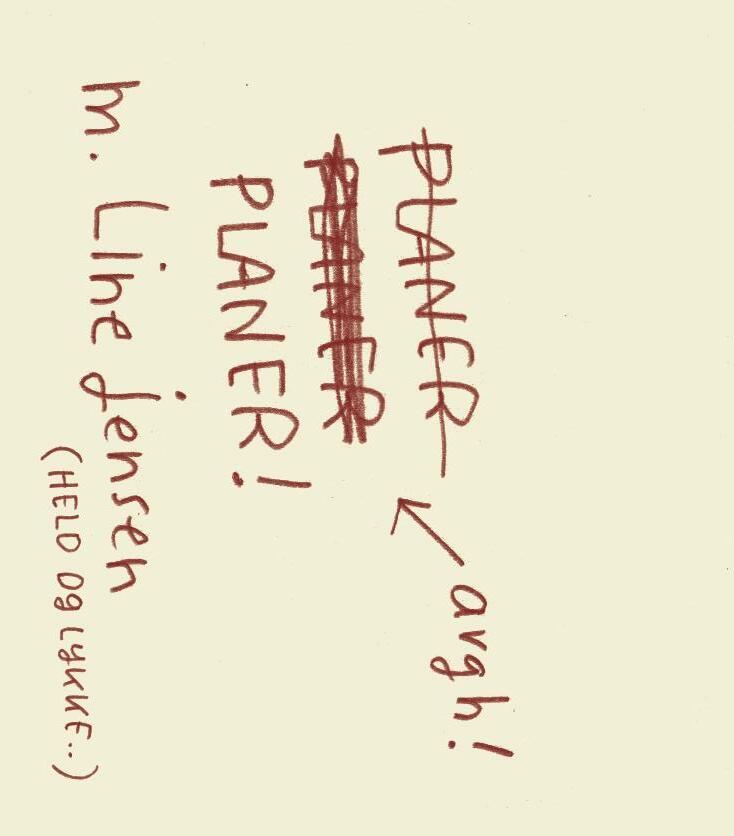 PLANER
argh!
PLANER
PLANER!
m. Line Jensen
(HELD OG LYKKE..)